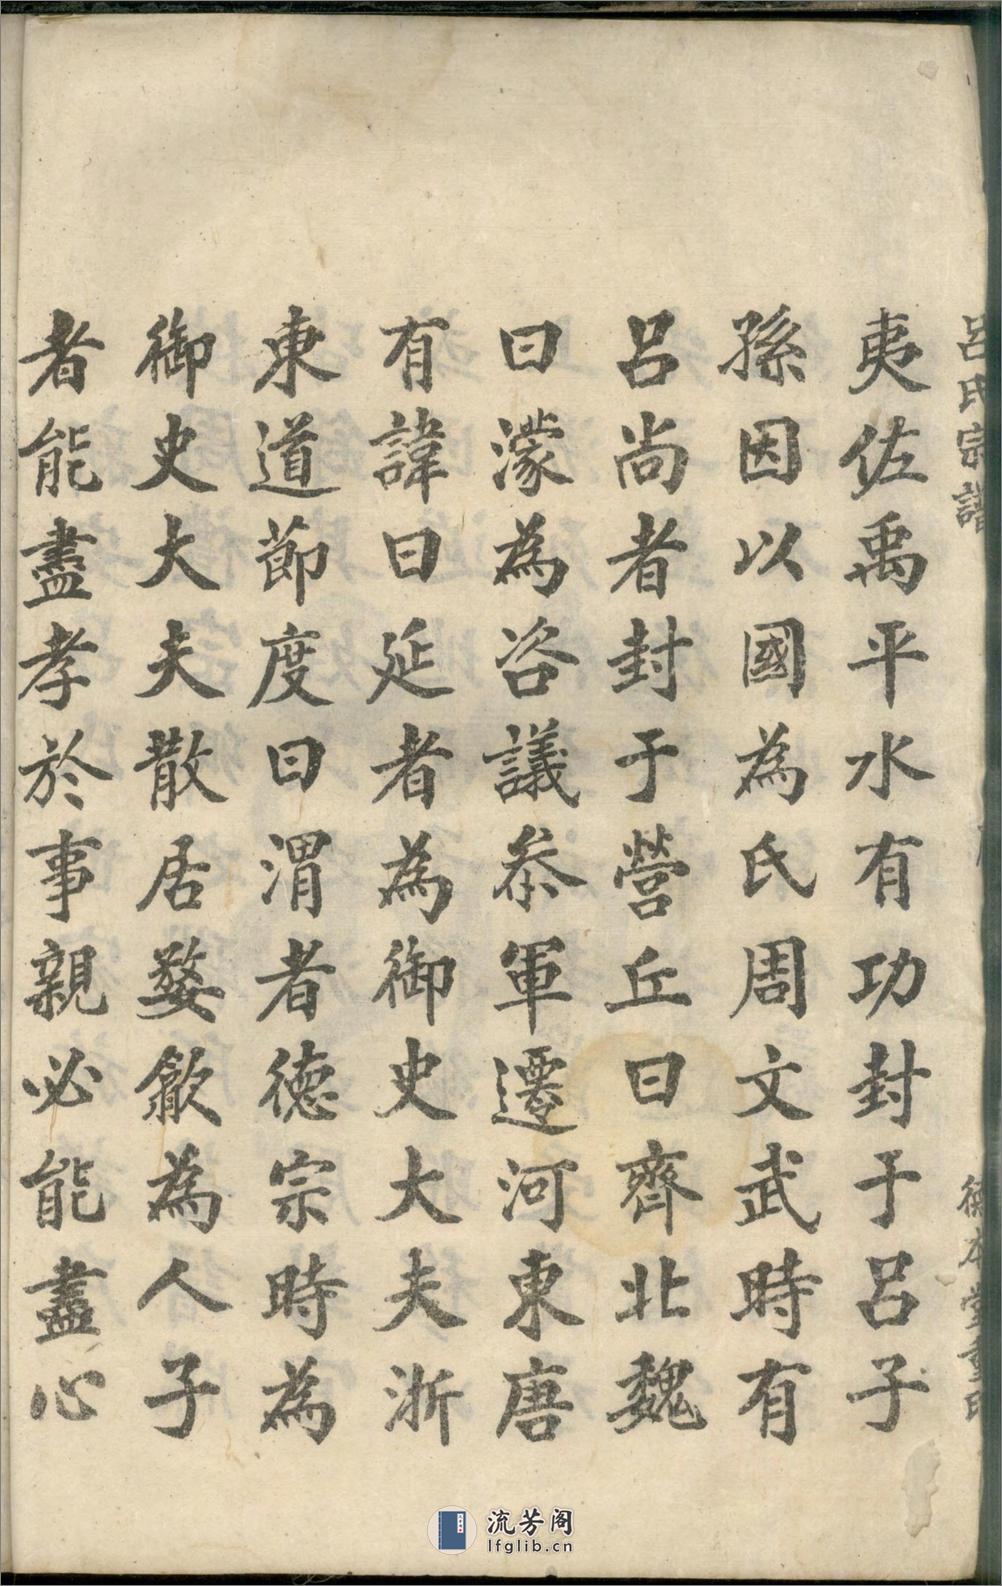 呂氏宗譜
夷佐禹平水有功封于呂子
孫因以國為氏周文武時有
呂尚者封于營丘曰齊北魏
曰濛為咨議叅軍遷河東唐
有諱曰延者為御史大夫浙
東道節度曰渭者德宗時為
御史大夫散居婺歙為人子
者能盡孝於事親必能盡心
流芳阁
lfglib.cn